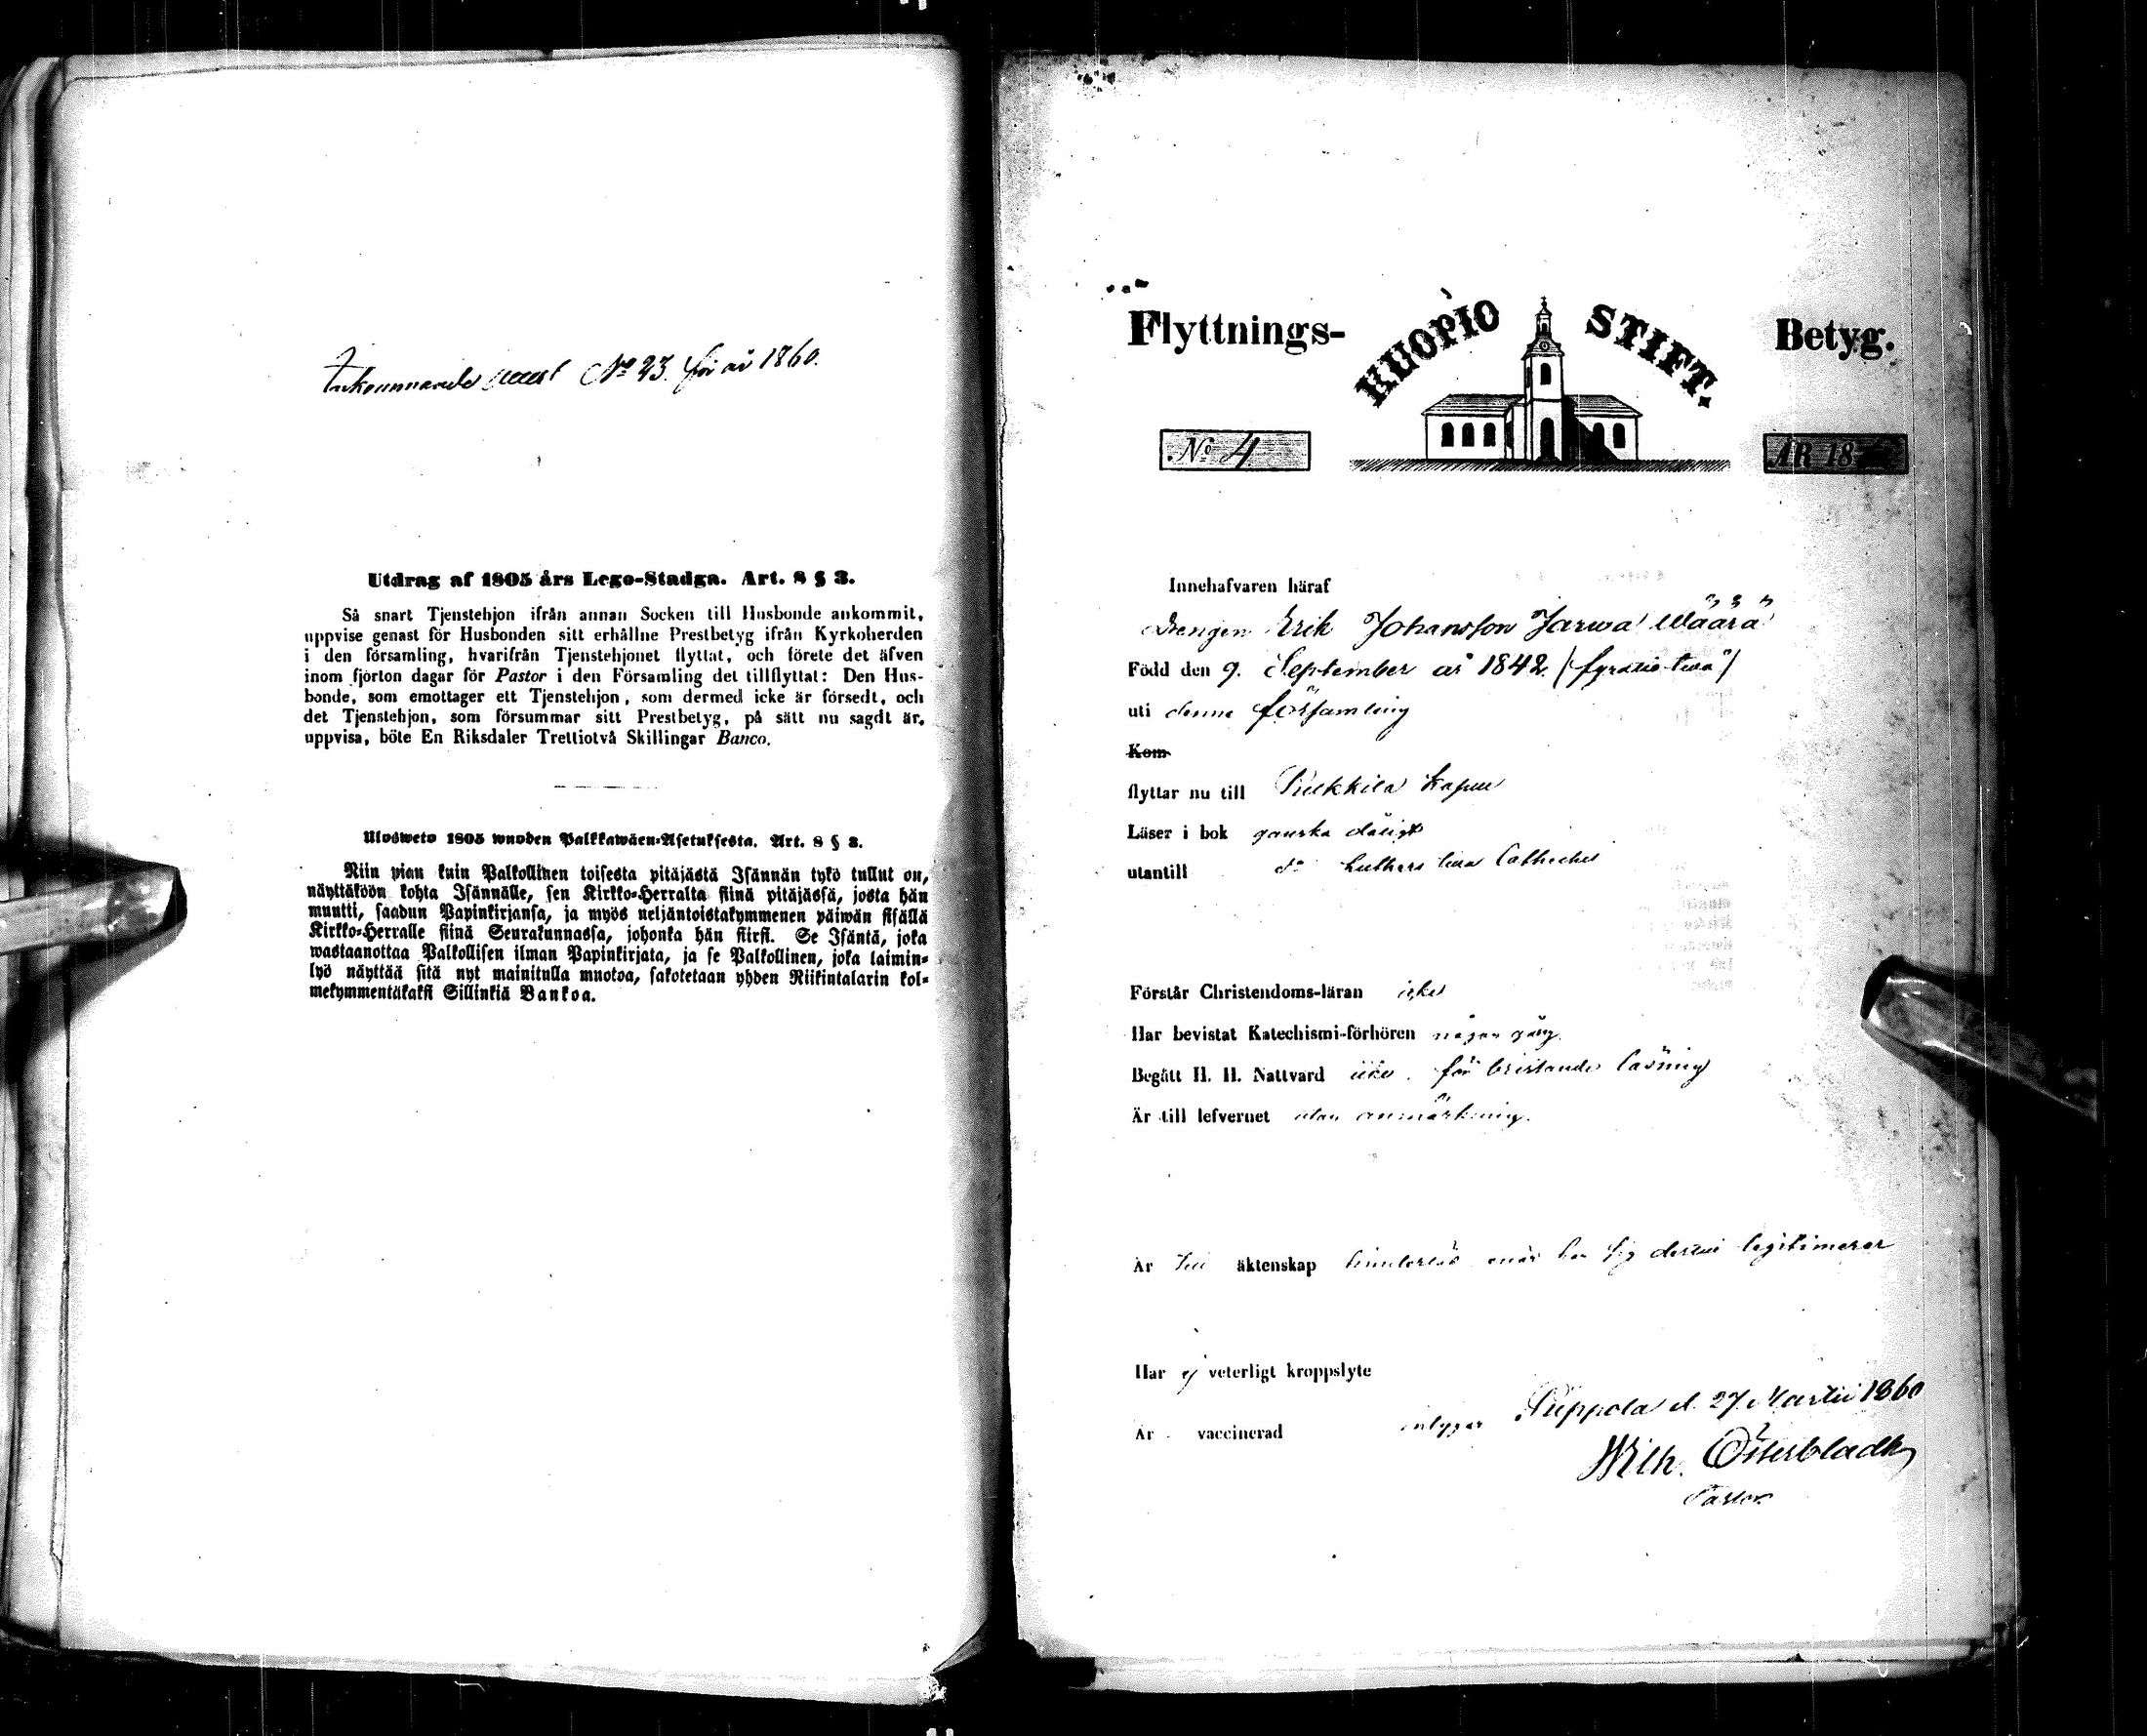 Inkommande attest No 23. för år 1860.
Utdrag af 1805 års Lego-Stadga. Art. 8 § 3.
Så snart Tjenstehjon ifrån annan Socken till Husbonde ankommit,
uppvise genast för Husbonden sitt erhållne Prestbetyg ifrån Kyrkoherden
i den församling, hvarifrån Tjenstehjonet flyttat, och förete det äfven
inom fjorton dagar för Pastor i den Församling det tillflyttat: Den Hus-
bonde, som emottager ett Tjenstehjon, som dermed icke är försedt, och
det Tjenstehjon, som försummar sitt Prestbetyg, på sätt nu sagdt är,
uppvisa, böte En Riksdaler Trettiotvå Skillingar Banco.
Ulosweto 1805 wuoden Palkkawäen-Asetuksesta. Art. 8 § 3.
Niin pian kuin Palkollinen toisesta pitäjästä Isännän tykö tullut on,
näyttäköön kohta Isännälle, sen Kirkko-Herralta siinä pitäjässä, josta hän
muutti, saadun Papinkirjansa, ja myös neljäntoistakymmenen päiwän sisällä
Kirkko-Herralle siinä Seurakunnassa, johonka hän siirsi. Se Isäntä, joka
wastaanottaa Palkollisen ilman Papinkirjata, ja se Palkollinen, joka laimin-
lyö näyttää sitä nyt mainitulla muotoa, sakotetaan yhden Riikintalarin kol-
mekymmentäkaksi Sillinkiä Bankoa.
Flyttnings- KUOPIO STIFT. Betyg.
No 4 ÅR 18
Innehafvaren häraf
Drengen Erik Johansson Jarwa Määrä
Född den 9. September år 1842. (fyratio två)
uti denne församling
Kom
flyttar nu till Pulkkila kapell
Läser i bok ganska dåligt
utantill do Luthers lilla Catheches
Förstår Christendoms-läran icke
Har bevistat Katechismi-förhören någon gång.
Begått H. H. Nattvard icke. för bristande läsning
Är till lefvernet utan anmärkning.
Är till äktenskap hinderlös när han sig dertill legitimerar
Har ej veterligt kroppslyte
Är vaccinerad intygar Piippola d. 27 Martii 1860
Wilh. Österbladh
Pastor